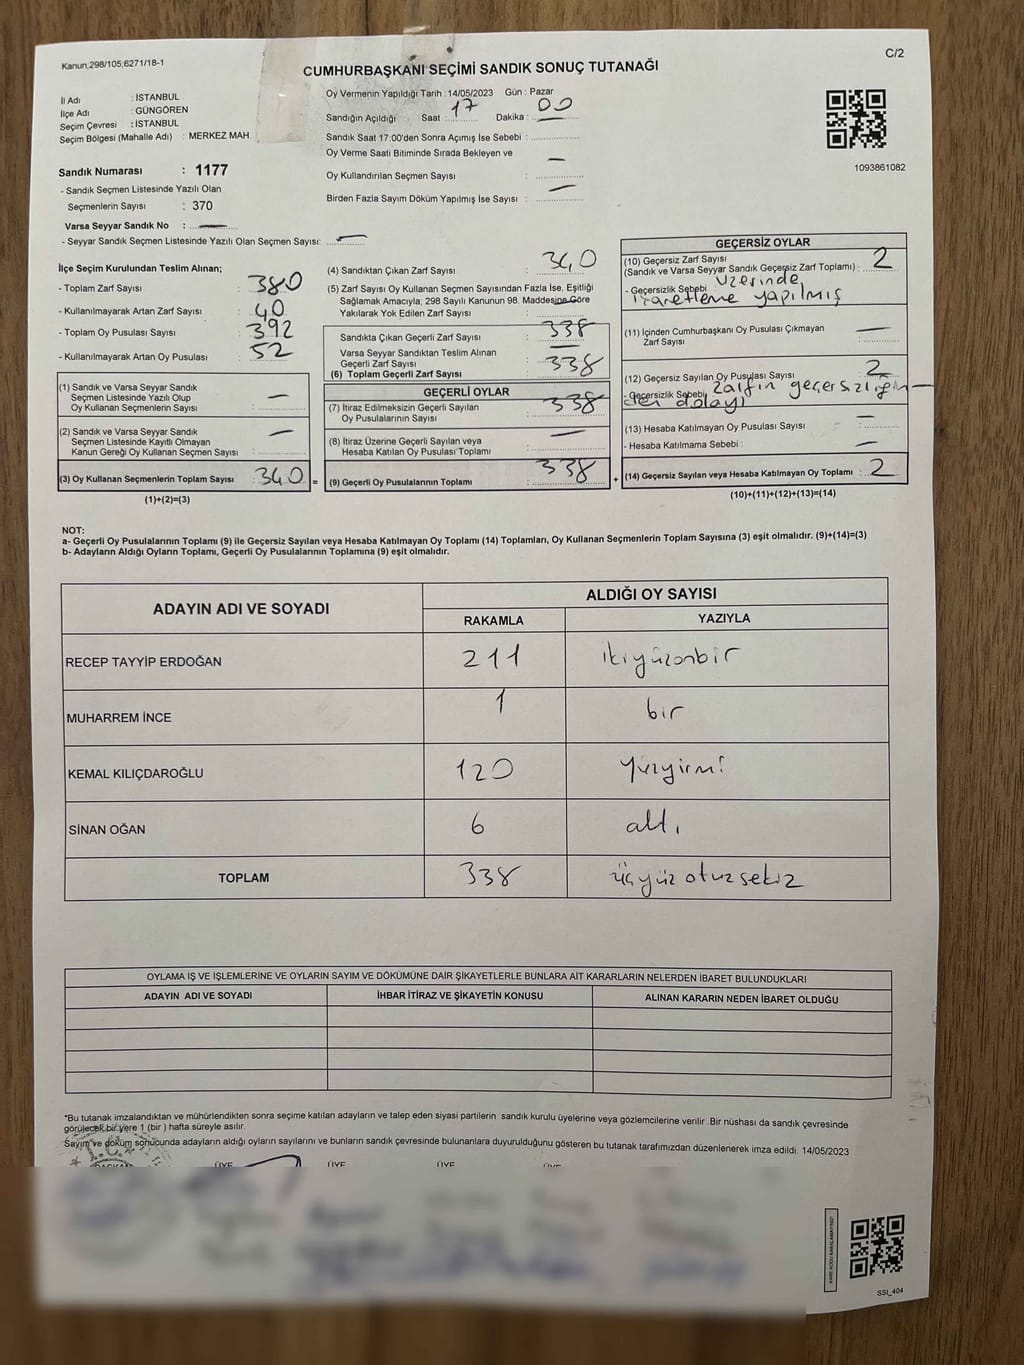 Kanun:298/105;6271/18-1
C/2
CUMHURBAŞKANI SEÇİMİ SANDIK SONUÇ TUTANAĞI
İl Adı : İSTANBUL
İlçe Adı : GÜNGÖREN
Seçim Çevresi : İSTANBUL
Seçim Bölgesi (Mahalle Adı) : MERKEZ MAH
Sandık Numarası : 1177
- Sandık Seçmen Listesinde Yazılı Olan
Seçmenlerin Sayısı : 370
Varsa Seyyar Sandık No : —
- Seyyar Sandık Seçmen Listesinde Yazılı Olan Seçmen Sayısı: —
Oy Vermenin Yapıldığı Tarih : 14/05/2023 Gün : Pazar
Sandığın Açıldığı Saat : 17 Dakika : 00
Sandık Saat 17:00'den Sonra Açımış İse Sebebi :
Oy Verme Saati Bitiminde Sırada Bekleyen ve
Oy Kullandırılan Seçmen Sayısı : —
Birden Fazla Sayım Döküm Yapılmış İse Sayısı : —
1093861082
İlçe Seçim Kurulundan Teslim Alınan;
- Toplam Zarf Sayısı : 380
- Kullanılmayarak Artan Zarf Sayısı : 40
- Toplam Oy Pusulası Sayısı : 392
- Kullanılmayarak Artan Oy Pusulası : 52
(1) Sandık ve Varsa Seyyar Sandık
Seçmen Listesinde Yazılı Olup
Oy Kullanan Seçmenlerin Sayısı : —
(2) Sandık ve Varsa Seyyar Sandık
Seçmen Listesinde Kayıtlı Olmayan
Kanun Gereği Oy Kullanan Seçmen Sayısı : —
(3) Oy Kullanan Seçmenlerin Toplam Sayısı : 340 =
(1)+(2)=(3)
(4) Sandıktan Çıkan Zarf Sayısı : 340
(5) Zarf Sayısı Oy Kullanan Seçmen Sayısından Fazla İse, Eşitliği
Sağlamak Amacıyla; 298 Sayılı Kanunun 98. Maddesine Göre
Yakılarak Yok Edilen Zarf Sayısı : —
Sandıkta Çıkan Geçerli Zarf Sayısı : 338
Varsa Seyyar Sandıktan Teslim Alınan
Geçerli Zarf Sayısı : —
(6) Toplam Geçerli Zarf Sayısı : 338
GEÇERLİ OYLAR
(7) İtiraz Edilmeksizin Geçerli Sayılan
Oy Pusulalarının Sayısı : 338
(8) İtiraz Üzerine Geçerli Sayılan veya
Hesaba Katılan Oy Pusulası Toplamı : —
(9) Geçerli Oy Pusulalarının Toplamı : 338 +
GEÇERSİZ OYLAR
(10) Geçersiz Zarf Sayısı
(Sandık ve Varsa Seyyar Sandık Geçersiz Zarf Toplamı) : 2
- Geçersizlik Sebebi : üzerinde
işaretleme yapılmış
(11) İçinden Cumhurbaşkanı Oy Pusulası Çıkmayan
Zarf Sayısı : —
(12) Geçersiz Sayılan Oy Pusulası Sayısı : 2
- Geçersizlik Sebebi : zarfın geçersizliğin
den dolayı
(13) Hesaba Katılmayan Oy Pusulası Sayısı : —
- Hesaba Katılmama Sebebi : —
(14) Geçersiz Sayılan veya Hesaba Katılmayan Oy Toplamı : 2
(10)+(11)+(12)+(13)=(14)
NOT:
a- Geçerli Oy Pusulalarının Toplamı (9) ile Geçersiz Sayılan veya Hesaba Katılmayan Oy Toplamı (14) Toplamları, Oy Kullanan Seçmenlerin Toplam Sayısına (3) eşit olmalıdır. (9)+(14)=(3)
b- Adayların Aldığı Oyların Toplamı, Geçerli Oy Pusulalarının Toplamına (9) eşit olmalıdır.
ADAYIN ADI VE SOYADI ALDIĞI OY SAYISI
RAKAMLA YAZIYLA
RECEP TAYYİP ERDOĞAN 211 ikiyüzonbir
MUHARREM İNCE 1 bir
KEMAL KILIÇDAROĞLU 120 yüzyirmi
SİNAN OĞAN 6 altı
TOPLAM 338 üçyüzotuzsekiz
OYLAMA İŞ VE İŞLEMLERİNE VE OYLARIN SAYIM VE DÖKÜMÜNE DAİR ŞİKAYETLERLE BUNLARA AİT KARARLARIN NELERDEN İBARET BULUNDUKLARI
ADAYIN ADI VE SOYADI İHBAR İTİRAZ VE ŞİKAYETİN KONUSU ALINAN KARARIN NEDEN İBARET OLDUĞU
*Bu tutanak imzalandıktan ve mühürlendikten sonra seçime katılan adayların ve talep eden siyasi partilerin sandık kurulu üyelerine veya gözlemcilerine verilir .Bir nüshası da sandık çevresinde
görülecek bir yere 1 (bir ) hafta süreyle asılır.
Sayım ve döküm sonucunda adayların aldığı oyların sayılarını ve bunların sandık çevresinde bulunanlara duyurulduğunu gösteren bu tutanak tarafımızdan düzenlenerek imza edildi. 14/05/2023
BAŞKAN ÜYE ÜYE ÜYE ÜYE
SSI_404